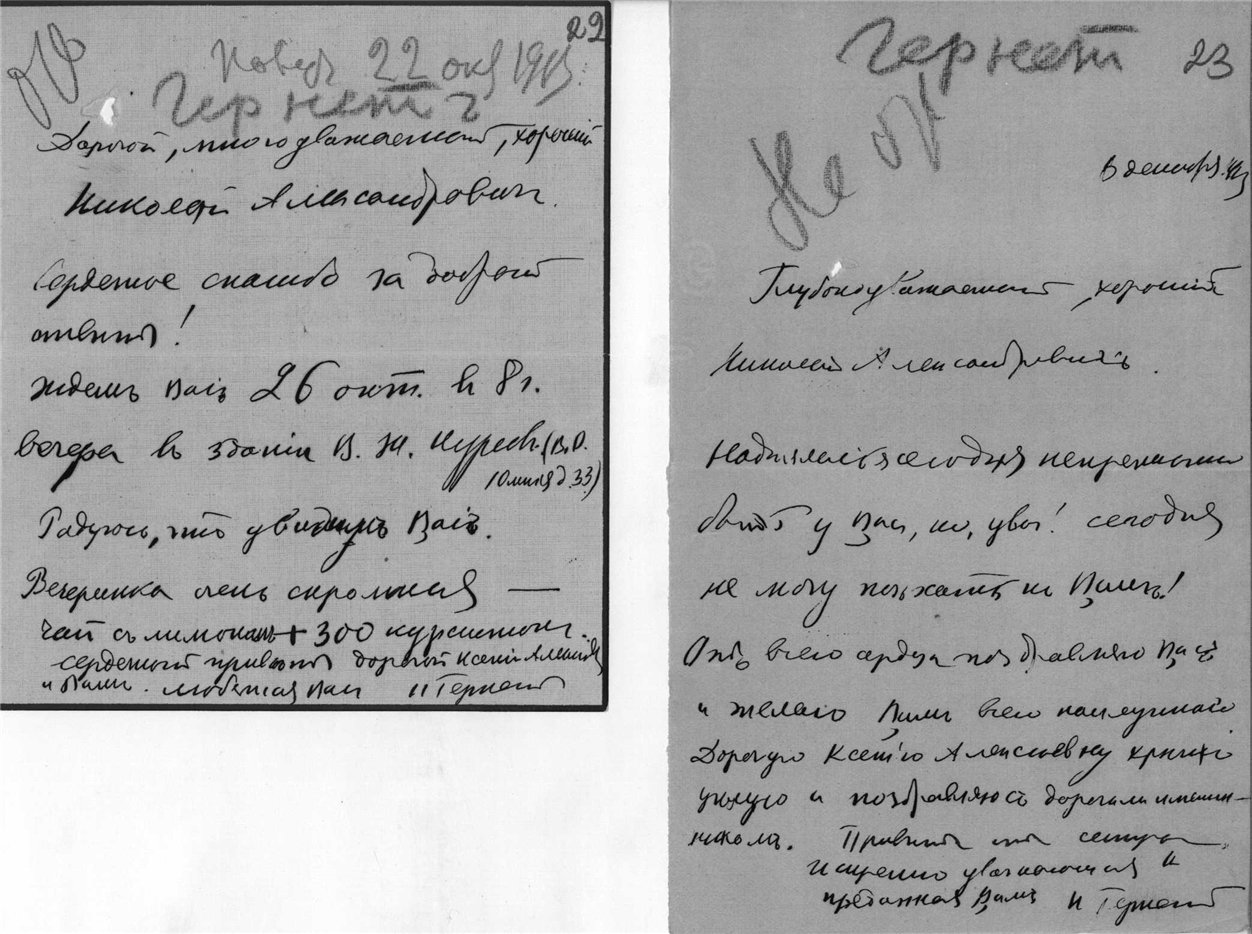 22
22 окт 1913
Гернет
Дорогой, многоуважаемый, хороший
Николай Александрович.
Сердечное спасибо за добрый
отвѣтъ!
Ждемъ Васъ 26 окт. в 8 г.
вечера въ зданіи В. Ж. Курсовъ (В. О.
10 линія д. 33)
Радуюсь, что увидимъ Васъ.
Вечеринка очень скромная —
чай съ лимономъ + 300 курсистокъ.
сердечный привѣтъ дорогой Ксеніи Алексѣевнѣ
и Вамъ. любящая Вас Н Гернет
Гернет 23
Не
6 декабря 13
Глубокоуважаемый, хороший
Николай Александровичъ.
Надѣялась сегодня непременно
быть у Вас, но, увы! сегодня
не могу поѣхать къ Вамъ!
Отъ всего сердца поздравляю Васъ
и желаю Вамъ всего наилучшаго
Дорогую Ксенію Алексѣевну крѣпко
цѣлую и поздравляю съ дорогимъ имянин-
никомъ. Привѣтъ от сестры.
Искренно уважающая и
преданная Вамъ Н Гернет